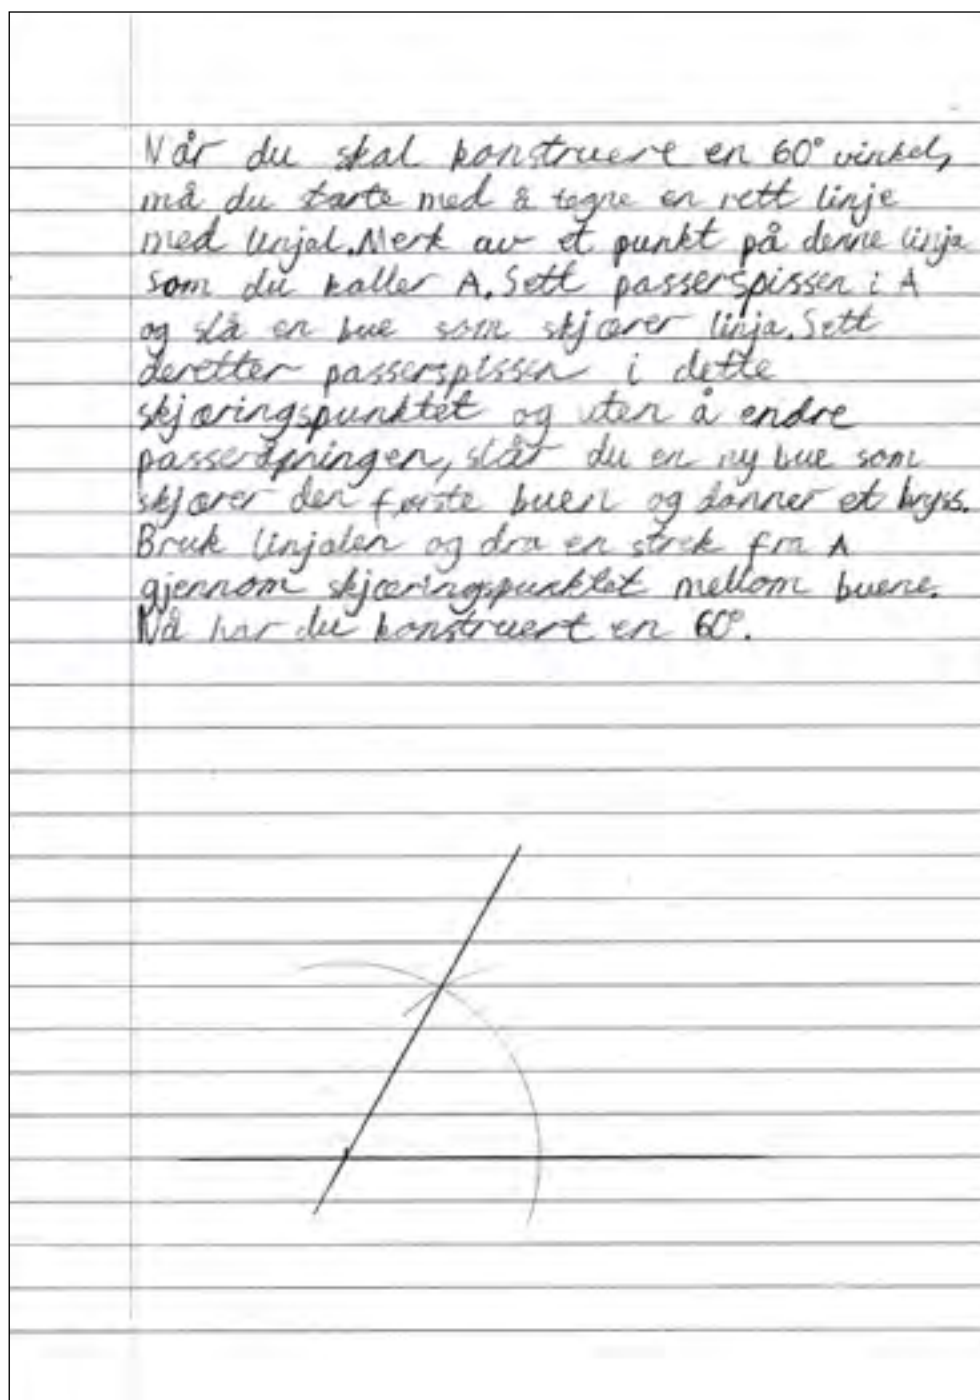 Når du skal konstruere en 60° vinkel,
må du starte med å tegne en rett linje
med linjal. Merk av et punkt på denne linja
som du kaller A. Sett passerspissen i A
og slå en bue som skjærer linja. Sett
deretter passerspissen i dette
skjæringspunktet og uten å endre
passeråpningen, slår du en ny bue som
skjærer den første buen og danner et kryss.
Bruk linjalen og dra en strek fra A
gjennom skjæringspunktet mellom buene.
Nå har du konstruert en 60°.